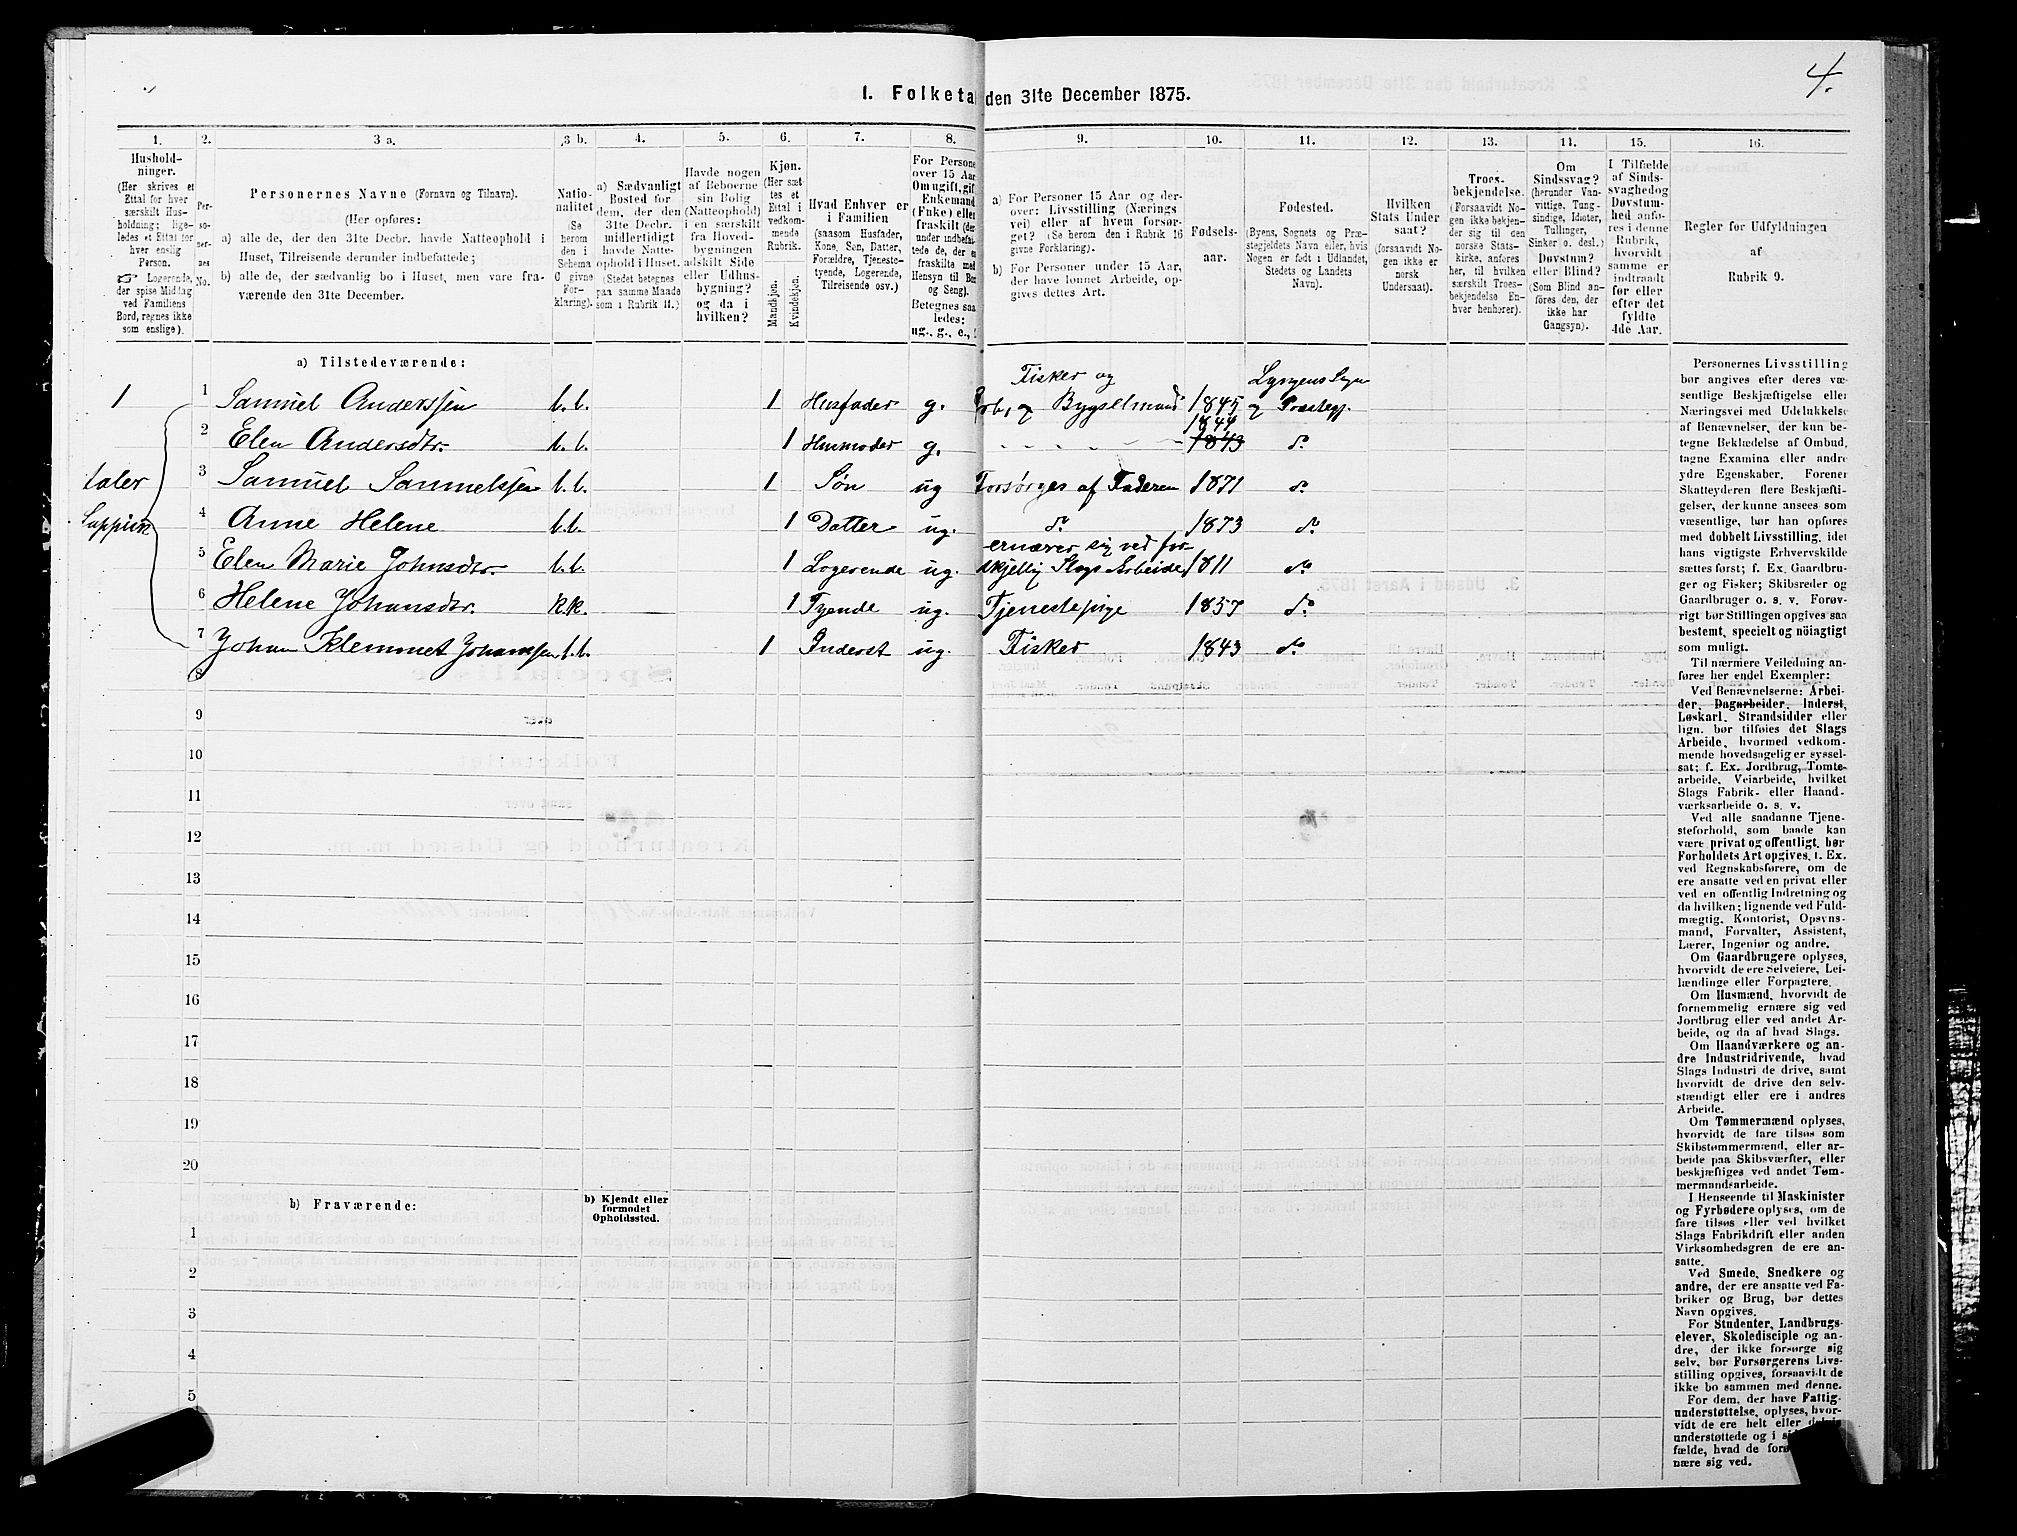 4.
1. Folketa den 31te December 1875.
1. 2. 3 a. 3 b. 4. 5. 6. 7. 8. 9. 10. 11. 12. 13. 14. 15. 16.
Hushold-
ninger.
(Her skrives et
Ettal for hver
særskilt Hus-
holdning; lige-
ledes et Ettal for
hver enslig
Person.
☞ Logerende,
der spise Middag
ved Familiens
Bord, regnes ikke
som enslige).
Per-
so-
ner-
nes
No.
Personernes Navne (Fornavn og Tilnavn).
(Her opføres:
a) alle de, der den 31te Decbr. havde Natteophold i
Huset, Tilreisende derunder indbefattede;
b) alle de, der sædvanlig bo i Huset, men vare fra-
værende den 31te December.
Natio-
nalitet
(Se
herom
den i
Schema
C givne
For-
klaring).
a) Sædvanligt
Bosted for
dem, der den
31te Decbr.
midlertidigt
havde Natte-
ophold i Huset.
(Stedet betegnes
paa samme Maade
som i Rubrik 11.)
Havde nogen
af Beboerne
sin Bolig
(Natteophold)
i en særskilt
fra Hoved-
bygningen
adskilt Side
eller Udhus-
bygning?
og da i
hvilken?
Kjøn.
(Her sæt-
tes et
Ettal i
vedkom-
mende
Rubrik.
Mandkjøn.
Kvindekjøn.
Hvad Enhver er
i Familien
(saasom Husfader,
Kone, Søn, Datter,
Forældre, Tjeneste-
tyende, Logerende,
Tilreisende osv.)
For Persone
over 15 Aar
Om ugift, gif
Enkemand
(Enke) elle
fraskilt (der
under indbefat-
tede de, der e
fraskilte med
Hensyn til Bor
og Seng).
Betegnes saa
ledes:
ug., g., e.,
a) For Personer 15 Aar og der-
over: Livsstilling (Nærings
vei) eller af hvem forsør-
get? (Se herom den i Rubrik 16
givne Forklaring).
b) For Personer under 15 Aar,
der have lønnet Arbeide, op-
gives dettes Art.
Fødsels-
aar.
Fødested.
(Byens, Sognets og Præ-
stegjeldets Navn eller, hvis
Nogen er født i Udlandet,
Stedets og Landets
Navn).
Hvilken
Stats Under
saat?
(forsaavidt No-
gen ikke er
norsk
Undersaat).
Troes-
bekjendelse.
(Forsaavidt No-
gen ikke bekjen-
der sig til den
norske Stats-
kirke, anføres
her, til hvilken
særskilt Troes-
bekjendelse En-
hver henhører).
Om
Sindssvag?
(herunder Van-
vittige, Tung-
sindige, Idioter,
Tullinger,
Sinker o. desl.)
Døvstum?
eller Blind?
(Som Blind an-
føres den, der
ikke har
Gangsyn).
I Tilfælde
af Sinds-
svaghedog
Døvstum-
hed anfø-
res i denne
Rubrik,
hvorvidt
samme er
indtraadt
før eller
efter det
fyldte
4de Aar.
Regler for Udfyldningen
af
Rubrik 9.
a) Tilstedeværende:
Fisker og Lyngens Sogn
1 1 Samuel Anderssen b.b. 1 Husfader g. og Bygselmand 1845 og Præstegj.
1844
2 Elen Andersdtr. b.b. 1 Husmoder g. 1843 do
taler 3 Samuel Samuelssen b.b. 1 Søn ug Forsørges af Faderen 1871 do
Lappisk 4 Anne Helene b.b. 1 Datter ug. do 1873 do
ernærer sig ved for-
5 Elen Marie Johnsdtr. b.b. 1 Logerende ug. skjellig Slags Arbeide 1811 do
6 Helene Johansdtr. k.k. 1 Tyende ug. Tjenestepige 1857 do
7 Johan Klemmet Johansen b.b. 1 Inderst ug. Fisker 1843 do
8
9
10
11
12
13
14
15
16
17
18
19
20
b) Fraværende:
b) Kjendt eller
formodet
Opholdssted.
1
2
3
4
5
Personernes Livsstilling
bør angives efter deres væ-
sentlige Beskjæftigelse eller
Næringsvei med Udelukkelse
af Benævnelser, der kun be-
tegne Beklædelse af Ombud,
tagne Examina eller andre
ydre Egenskaber. Forener
Skatteyderen flere Beskjæfti-
gelser, der kunne ansees som
væsentlige, bør han opføres
med dobbelt Livsstilling, idet
hans vigtigste Erhvervskilde
sættes først; f. Ex. Gaardbru-
ger og Fisker; Skibsreder og
Gaardbruger o. s. v. Forøv-
rigt bør Stillingen opgives saa
bestemt, specielt og nøiagtigt
som muligt.
Til nærmere Veiledning an-
føres her endel Exempler:
Ved Benævnelserne: Arbei-
der, Dagarbeider, Inderst,
Løskarl, Strandsidder eller
lign. bør tilføies det Slags
Arbeide, hvormed vedkom-
mende hovedsagelig er syssel-
sat; f. Ex. Jordbrug, Tomte-
arbeide, Veiarbeide, hvilket
Slags Fabrik- eller Haand-
værksarbeide o. s. v.
Ved alle saadanne Tjene-
steforhold, som baade kan
være privat og offentligt, bør
Forholdets Art opgives, f. Ex.
ved Regnskabsførere, om de
ere ansatte ved en privat eller
ved en offentlig Indretning og
da hvilken; lignende ved Fuld-
mægtig, Kontorist, Opsyns-
mand, Forvalter, Assistent,
Lærer, Ingeniør og andre.
Om Gaardbrugere oplyses,
hvorvidt de ere Selveiere, Lei-
lændinge eller Forpagtere.
Om Husmænd, hvorvidt de
fornemmelig ernære sig ved
Jordbrug eller ved andet Ar-
beide, og da af hvad Slags.
Om Haandværkere og an-
dre Industridrivende, hvad
Slags Industri de drive, samt
hvorvidt de drive den selv-
stændigt eller ere i andres
Arbeide.
Om Tømmermænd oplyses,
hvorvidt de fare tilsøs som
Skibstømmermænd, eller ar-
beide paa Skibsværfter, eller
beskjæftiges ved andet Tøm-
mermandsarbeide.
I Henseende til Maskinister
og Fyrbødere oplyses, om de
fare tilsøs eller ved hvilket
Slags Fabrikdrift eller anden
Virksomhedsgren de ere an-
satte.
Ved Smede, Snedkere og
andre, der ere ansatte ved Fa-
briker og Brug, bør dettes
Navn opgives.
For Studenter, Landbrugs-
elever, Skoledisciple og an-
dre, der ikke forsørge sig
selv, bør Forsørgerens Livs-
stilling opgives, forsaavidt de
ikke bo sammen med denne.
For dem, der have Fattig-
understøttelse, oplyses, hvor-
vidt de ere helt eller
understøttede og i
fælde, hvad de
nære sig ved.